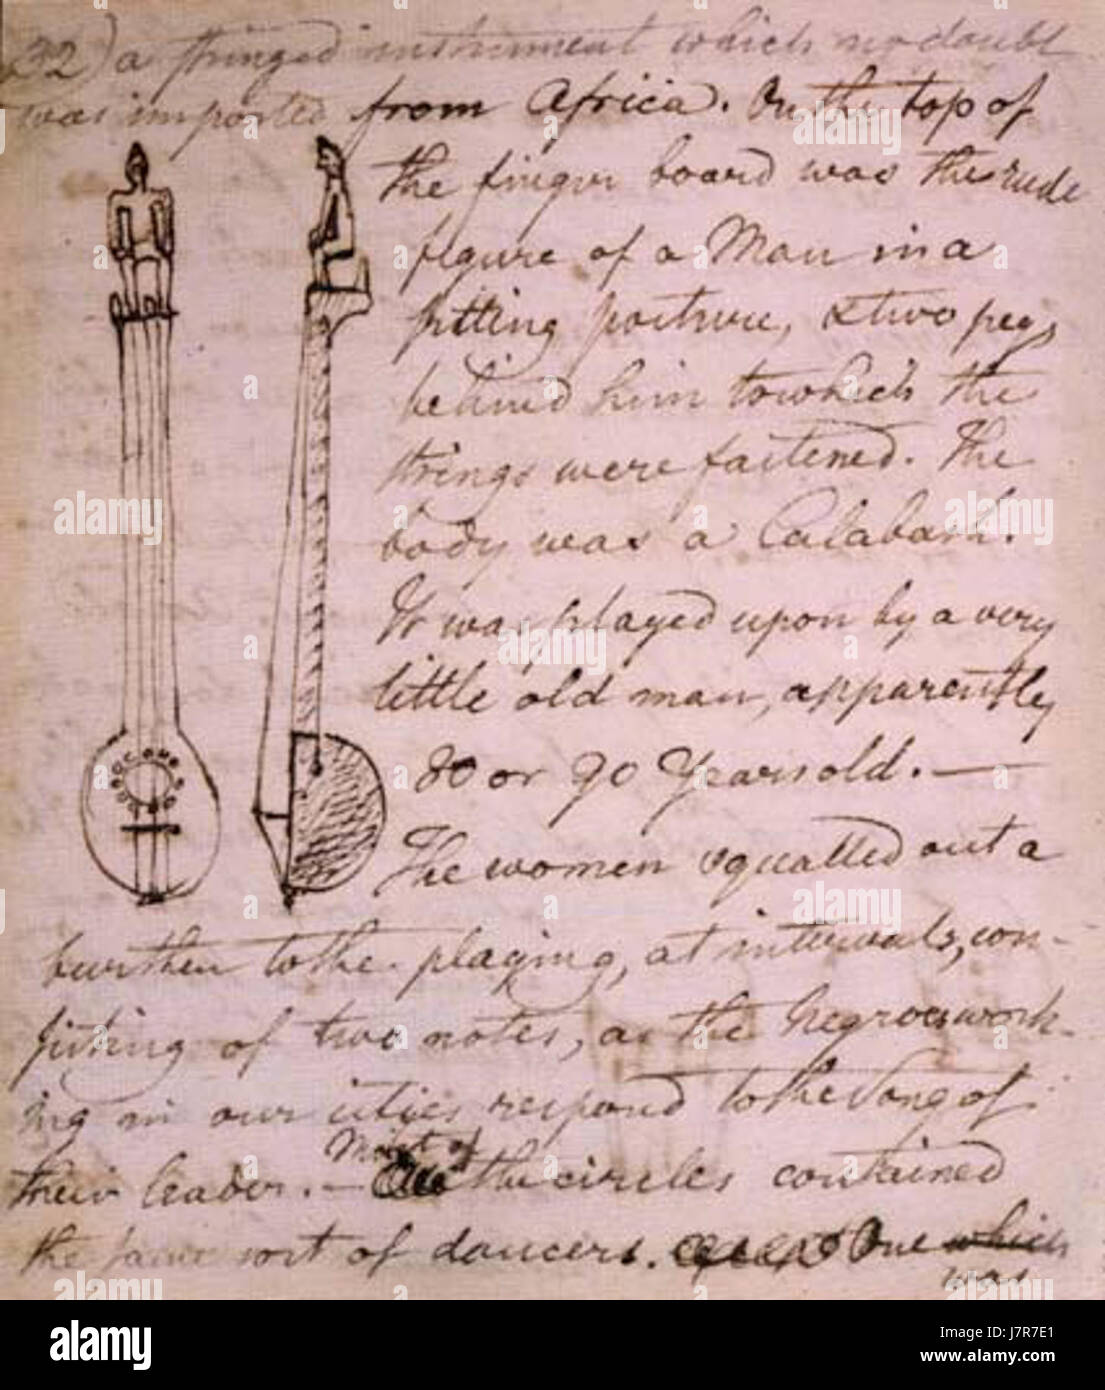 32) a stringed instrument which no doubt
was imported from Africa. On the top of
the finger board was the rude
figure of a Man in a
sitting posture, & two pegs
behind him to which the
strings were fastened. The
body was a Calabash.
It was played upon by a very
little old man, apparently
80 or 90 Years old. —
The women squalled out a
burthen to the playing, at intervals, con-
sisting of two notes, as the Negroes work-
ing in our cities respond to the Song of
their leader. — Most of the circles contained
the same sort of dancers. One which
was
alamy
Image ID: J7R7E1
www.alamy.com